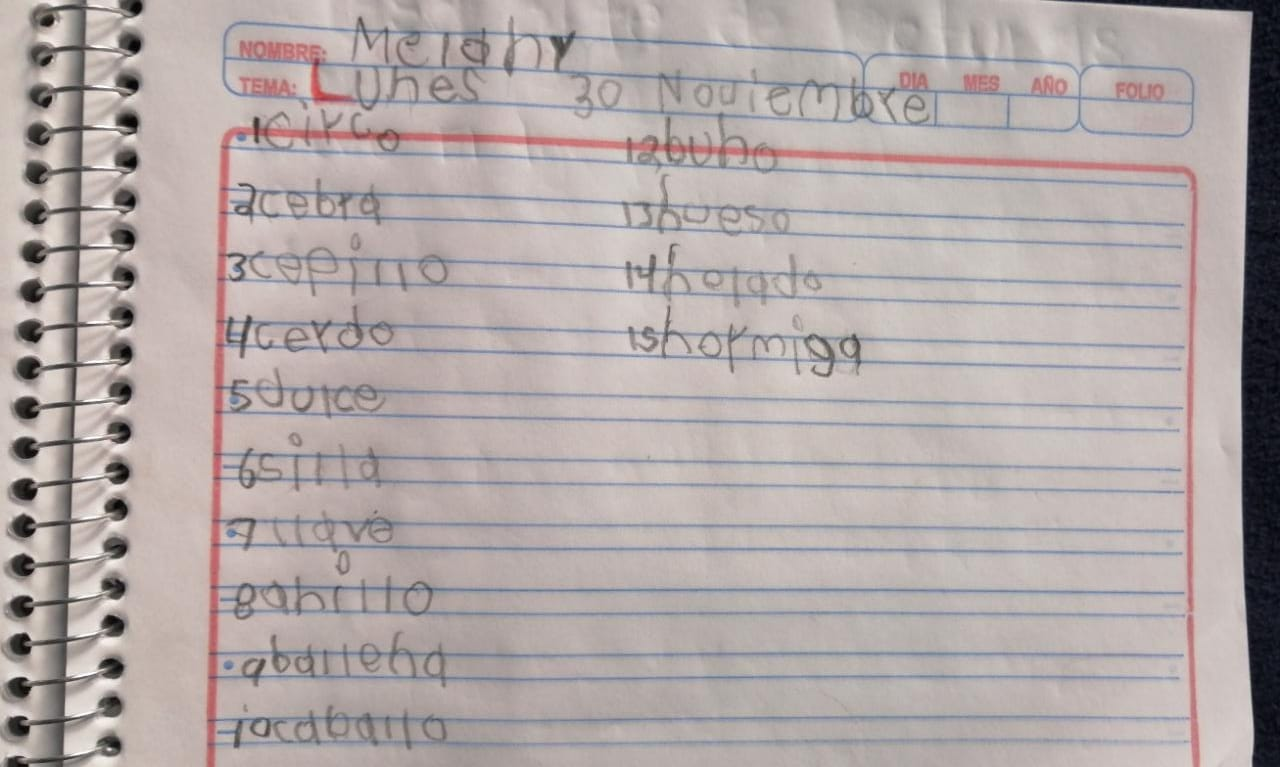 NOMBRE: Melany
TEMA: Lunes 30 Noviembre
DIA MES AÑO FOLIO
1 circo
2 cebra
3 cepillo
4 cerdo
5 dulce
6 silla
7 llave
8 anillo
9 ballena
10 caballo
12 buho
13 hueso
14 helado
15 hormiga